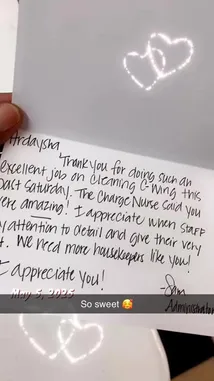 Hrdaysha
Thank you for doing such an
excellent job on cleaning C-Wing this
past Saturday. The Charge Nurse said you
were amazing! I appreciate when staff
ay attention to detail and give their very
t. We need more housekeepers like you!
I appreciate you!
Administrator
May 5, 2025
So sweet 🥰